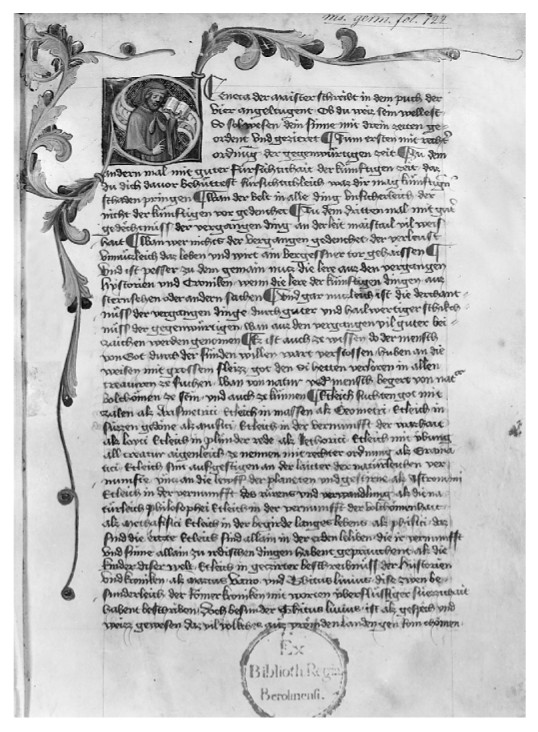 ms. germ. fol. 722
Seneca der maister schreibt in dem puch der
vier angeltugent Ob du weis sein wellest
So sol wesen dein sinne mit drein zeiten ge-
ordent vnd gezieret Zum ersten mit rechter
ordnung der gegenwürtigen zeit Zu dem
andern mal mit guter fursichtikait der künftigen zeit das
du dich dauor behüttest fursichtikleich was dir mag künftigen
schaden pringen Wan der volt in alle ding vnsicherleich der
nicht der künftigen vor gedencket Zu dem dritten mal mit guter
gedechtnüss der vergangen ding an der leit maistail vil weis-
hait Wan wer nichts der vergangen gedencket der verleust
vnnuczleich das leben vnd wirt am vergessner tor gehaissen
Vnd ist pesser zu dem gemain nucz die lere aus den vergangen
hystorien vnd Croniken wenn die lere der künftigen dingen aus
sternsehen oder andern sachen Vnd gar nuczleich ist die
nüss der vergangen dinge durch guter vnd hailwertiger
nüss der gegenwürtigen wan aus den vergangen vil guter bei-
zaichen werden genomen Es ist auch ze wissen do der mensch
von Got durch der sünden willen wart verstossen haben an die
weisen mit grossem fleizz got den si hetten verloren in allen
creaturen ze suchen Wan von natur yeder mensch begert von natur
volchomen ze sein vnd auch ze künnen Etleich suchten got mit
zalen als Arismetrici Etleich in massen als Geometri Etleich in
süzzen gedöne als Musici Etleich in der vernunfft der warhait
als loyci Etleich in plünder rede als Rethorici Etleich mit übung
all creatur aigenleich ze nennen mit rechter ordnung als Grama-
tici Etleich sint aufgestigen an der laitter der natürleichen ver-
nunfte vncz an die lewff der planeten vnd gestirne als Astronomi
Etleich in der vernunfft des rürens vnd verwandlung als die na-
türleich philosophei Etleich in der vernunfft der volchomenhait
als Methafisici Etleich in der begirde langes lebens als phisici das
sind die ärtzte Etleich sind allain in der erden beliben die ir vernunfft
vnd sinne allain zu irdischen dingen habent geprauchent als die
kinder diser welt Etleich in gezirter beschreibnüss der historien
vnd kroniken als Marcus Varro vnd Thitus liuius dise zwen be-
sunderleich der römer kroniken mit worten überflüssiger süezzichait
habent beschriben Doch besunder Thitus liuius ist als gesprech vnd
weis gewesen das vil volkes aus frömden landen gen Rom chomen
Ex
Biblioth. Regia
Berolinensi.